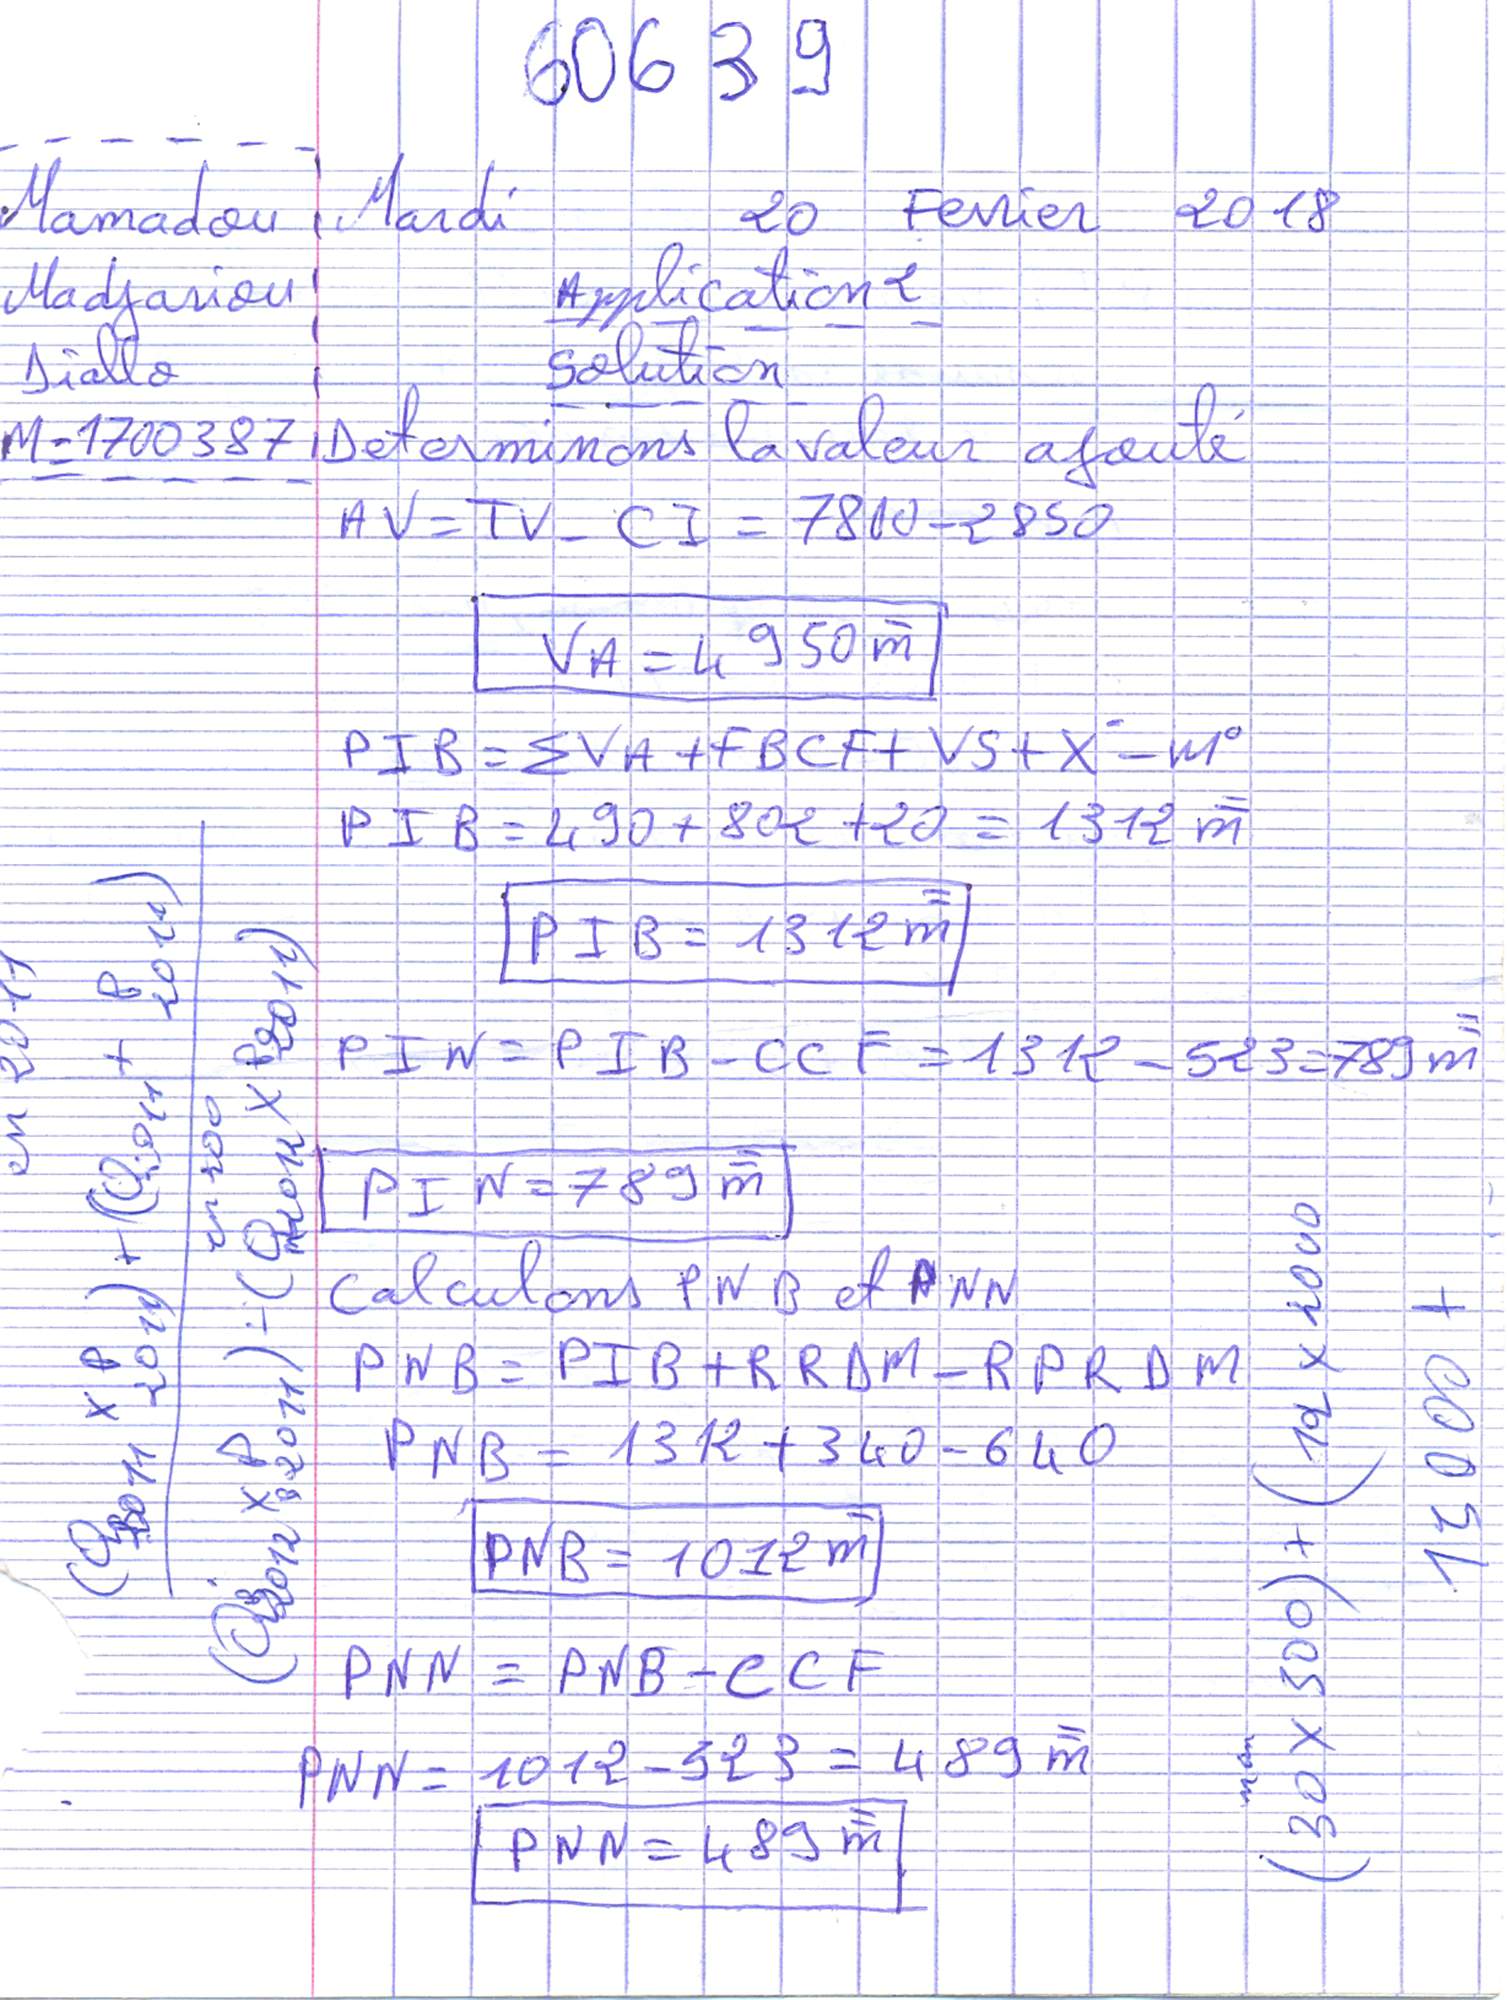 60639
Mamadou
Madjariou
Diallo
M=1700387
Mardi 20 Fevrier 2018
Application 2
Solution
Determinons la valeur ajouté
AV = TV - CI = 7810 - 2850
VA = 4950 m
PIB = ΣVA + FBCF + VS + X - M°
PIB = 490 + 802 + 20 = 1312 m
PIB = 1312 m
PIN = PIB - CCF = 1312 - 523 = 789 m
PIN = 789 m
Calculons PNB et PNN
PNB = PIB + RRDM - RPRDM
PNB = 1312 + 340 - 640
PNB = 1012 m
PNN = PNB - CCF
PNN = 1012 - 523 = 489 m
PNN = 489 m
en 2011
(30 x 500) + (12 x 2000
15000 +